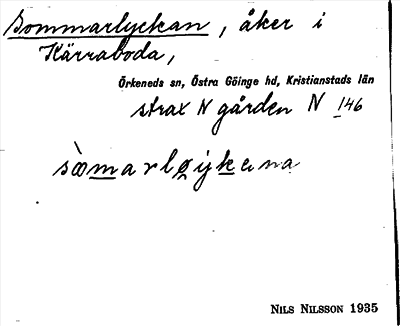 Sommarlyckan, åker i
Kärraboda,
Örkeneds sn, Östra Göinge hd, Kristianstads län
strax N gården N 146
NILS NILSSON 1935